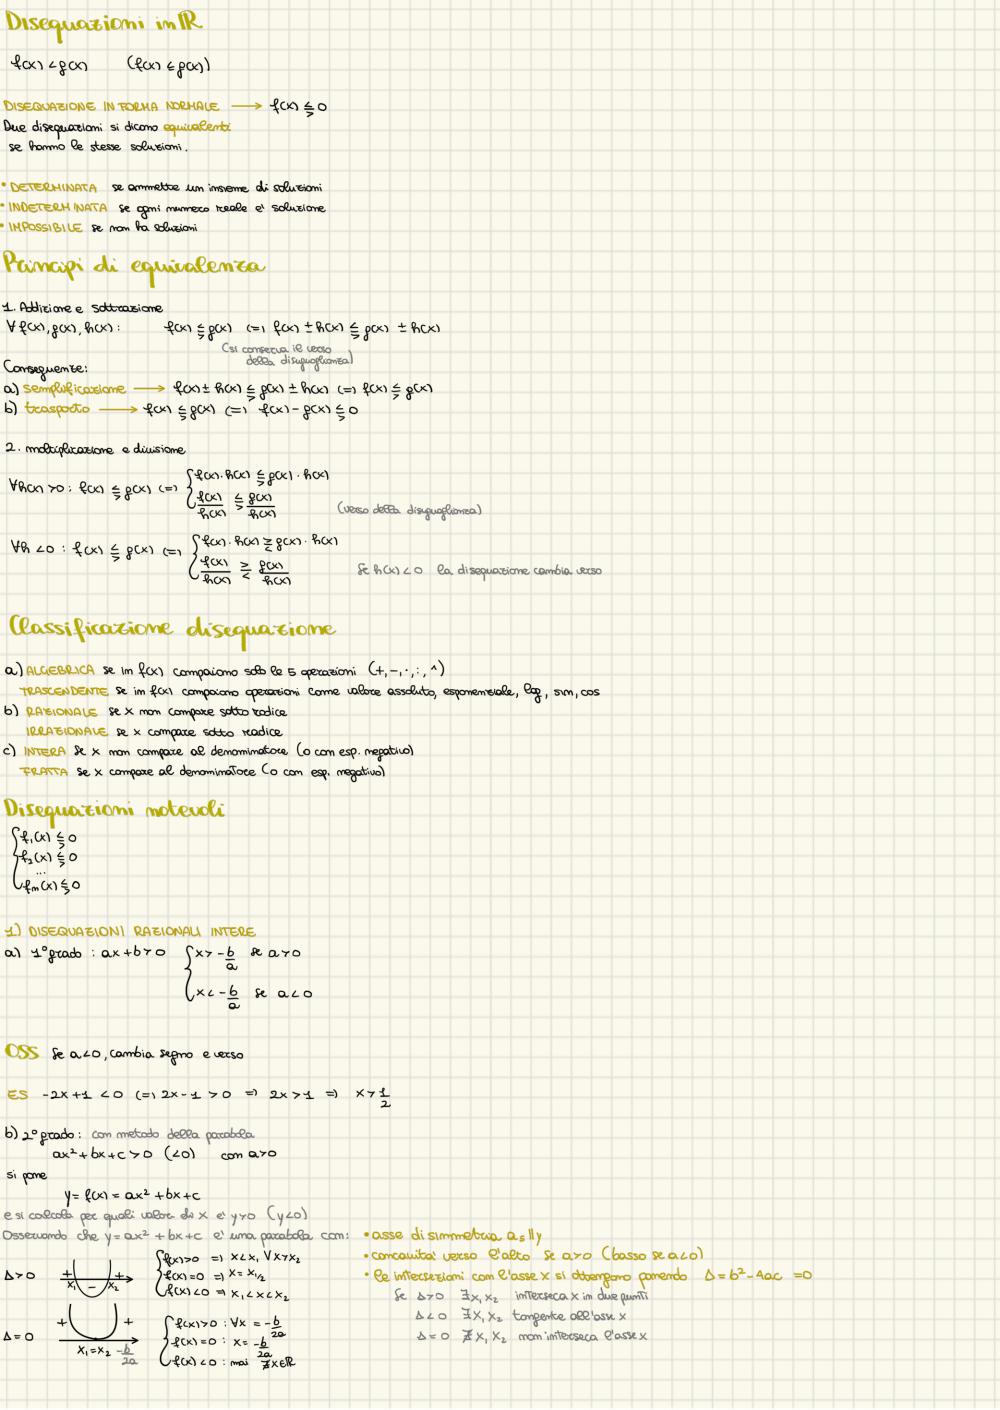 Disequazioni in ℝ
f(x) < g(x) (f(x) ≤ g(x))
DISEQUAZIONE IN FORMA NORMALE → f(x) ≤> 0
Due disequazioni si dicono equivalenti
se hanno le stesse soluzioni.
• DETERMINATA se ammette un insieme di soluzioni
• INDETERMINATA se ogni numero reale e' soluzione
• IMPOSSIBILE se non ha soluzioni
Principi di equivalenza
1. Addizione e sottrazione
∀ f(x), g(x), h(x) : f(x) ≤> g(x) (=) f(x) ± h(x) ≤> g(x) ± h(x)
(si conserva il verso
della disuguaglianza)
Conseguenze:
a) semplificazione → f(x) ± h(x) ≤> g(x) ± h(x) (=) f(x) ≤> g(x)
b) trasporto → f(x) ≤> g(x) (=) f(x) - g(x) ≤> 0
2. moltiplicazione e divisione
∀h(x) > 0 : f(x) ≤> g(x) (=) { f(x) · h(x) ≤> g(x) · h(x)
f(x)/h(x) ≤> g(x)/h(x)
(verso della disuguaglianza)
∀h < 0 : f(x) ≤> g(x) (=) { f(x) · h(x) ≥< g(x) · h(x)
f(x)/h(x) ≥< g(x)/h(x)
Se h(x) < 0 la disequazione cambia verso
Classificazione disequazione
a) ALGEBRICA se in f(x) compaiono solo le 5 operazioni (+, -, ·, :, ^)
TRASCENDENTE se in f(x) compaiono operazioni come valore assoluto, esponenziale, log, sin, cos
b) RAZIONALE se x non compare sotto radice
IRRAZIONALE se x compare sotto radice
c) INTERA se x non compare al denominatore (o con esp. negativo)
FRATTA se x compare al denominatore (o con esp. negativo)
Disequazioni notevoli
{ f₁(x) ≤> 0
f₂(x) ≤> 0
...
fₙ(x) ≤> 0
1) DISEQUAZIONI RAZIONALI INTERE
a) 1° grado : ax + b > 0 { x > -b/a se a > 0
x < -b/a se a < 0
OSS Se a < 0, cambia segno e verso
ES -2x + 1 < 0 (=) 2x - 1 > 0 =) 2x > 1 =) x > 1/2
b) 2° grado : con metodo della parabola
ax² + bx + c > 0 (< 0) con a > 0
si pone
y = f(x) = ax² + bx + c
e si calcola per quali valori di x e' y > 0 (y < 0)
Osservando che y = ax² + bx + c e' una parabola con:
• asse di simmetria aₛ ∥ y
• concavita' verso l'alto se a > 0 (basso se a < 0)
• le intersezioni con l'asse x si ottengono ponendo Δ = b² - 4ac = 0
Se Δ > 0 ∃ x₁ x₂ interseca x in due punti
Δ < 0 ∃ x₁ x₂ tangente all'asse x
Δ = 0 ∄ x₁ x₂ non interseca l'asse x
Δ > 0 + x₁ - x₂ + { f(x) > 0 =) x < x₁ ∀ x > x₂
f(x) = 0 =) x = x₁/₂
f(x) < 0 =) x₁ < x < x₂
Δ = 0 + + x₁ = x₂ -b/2a { f(x) > 0 : ∀x = -b/2a
f(x) = 0 : x = -b/2a
f(x) < 0 : mai ∄ x ∈ ℝ